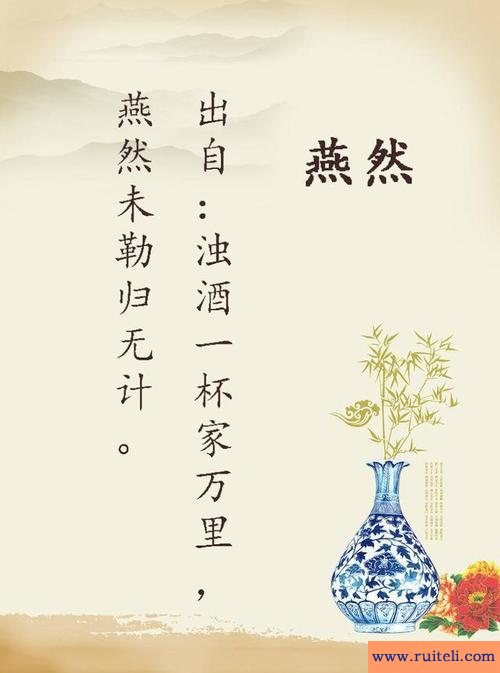 燕然
出自：浊酒一杯家万里，
燕然未勒归无计。
www.ruiteli.com